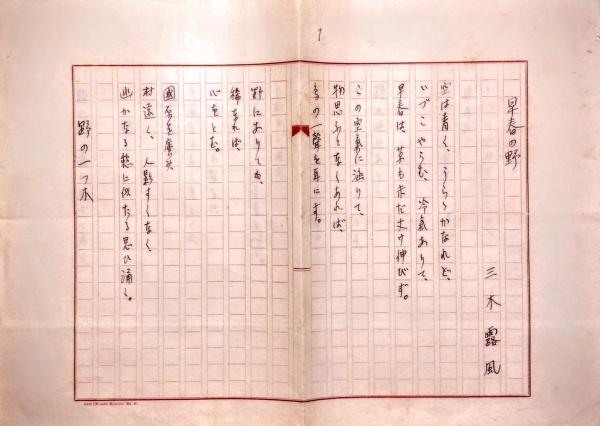 1
早春の野
三木露風
空は青く、うらゝかなれど、
いづこやらむ、冷氣ありて、
早春は、草も未だ丈け伸びず。
この空氣に浴りて、
物思ふとなくあれば、
鳥の一聲を耳にす。
野にありても、
稀なれば、
心をとむ。
國原を
村遠く、人影すくなく、
幽かなる愁に似たる思ひ涌く。
野の一つ木